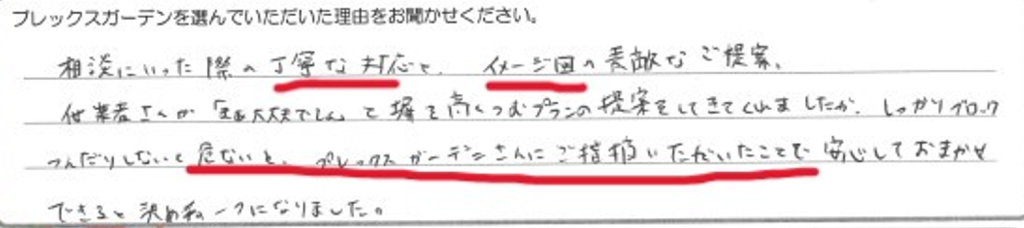 プレックスガーデンを選んでいただいた理由をお聞かせください。
相談にいった際の丁寧な対応と、イメージ図の素敵なご提案、
他業者さんが「まぁ大丈夫でしょ」と塀を高くつむプランの提案をしてきてくれましたが、しっかりブロック
つんだりしないと危ないと、プレックスガーデンさんにご指摘いただいたことで安心しておまかせ
できると決め
になりました。